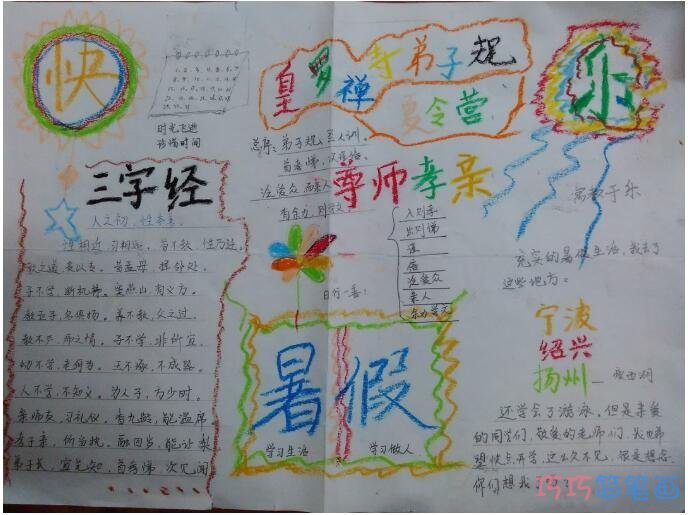 快
时光飞逝
珍惜时间
皇罗禅寺弟子规
夏令营
乐
总序：弟子规，圣人训，
首孝悌，次谨信，
泛爱众，而亲人
有余力，则学文。
尊师孝亲
入则孝
出则悌
谨
信
泛爱众
亲人
余力学文
日行一善：
三字经
人之初，性本善。
性相近，习相远。苟不教，性乃迁。
教之道，贵以专。昔孟母，择邻处。
子不学，断机杼。窦燕山，有义方。
教五子，名俱扬。养不教，父之过。
教不严，师之惰。子不学，非所宜。
幼不学，老何为。玉不琢，不成器。
人不学，不知义。为人子，方少时。
亲师友，习礼仪。香九龄，能温席
孝于亲，所当执。融四岁，能让梨
弟于长，宜先知。首孝悌，次见闻
暑假
学习生活
学习做人
寓教于乐
充实的暑假生活，我去了
这些地方。
宁波
绍兴
扬州—瘦西湖
还学会了游泳。但是亲爱
的同学们，敬爱的老师们，我也希
望快点开学，这么久不见，很是想念
你们想我了
巧巧简笔画